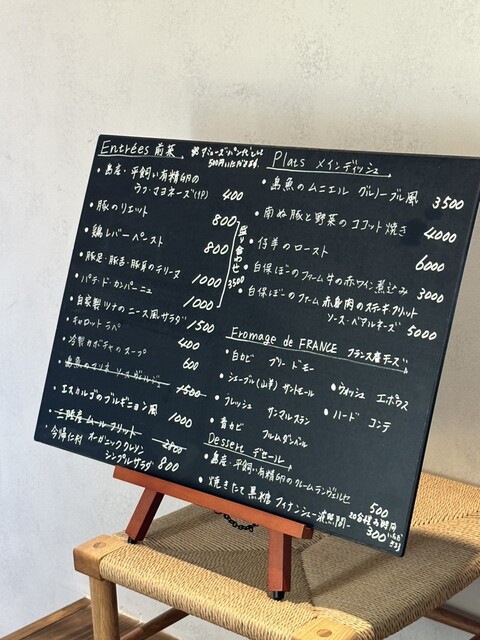 Entrées 前菜
・島産・平飼い有精卵の
ウフ・マヨネーズ(1P) 400
・豚のリエット 800
・鶏レバーペースト 800
盛り合わせ 3500
・豚足・豚舌・豚耳のテリーヌ 1000
・パテ・ド・カンパーニュ 1000
・自家製ツナのニース風サラダ 1500
・キャロットラペ 400
・冷製カボチャのスープ 600
・島魚のマリネ 1500
・エスカルゴのブルギニョン風 1000
ムール・フリット 2800
今帰仁村 オーガニッククレソン
シンプルサラダ 800
Plats メインディッシュ
・島魚のムニエル グルノーブル風 3500
・南ぬ豚と野菜のココット焼き 4000
・仔羊のロースト 6000
・白保ぽこのファーム牛の赤ワイン煮込み 3000
・白保ぽこのファーム赤身肉のステーキフリット
ソース・ベアルネーズ 5000
Fromage de FRANCE フランス産チーズ
・白カビ ブリードモー
・シェーブル(山羊) サントモール
・ウォッシュ エポワス
・フレッシュ サンマルスラン
・ハード コンテ
・青カビ フルムダンベール
Dessert デセール
・島産・平飼い有精卵のクレームランヴェルセ 500
・焼きたて黒糖フィナンシェ 波照間 300
20分程お時間